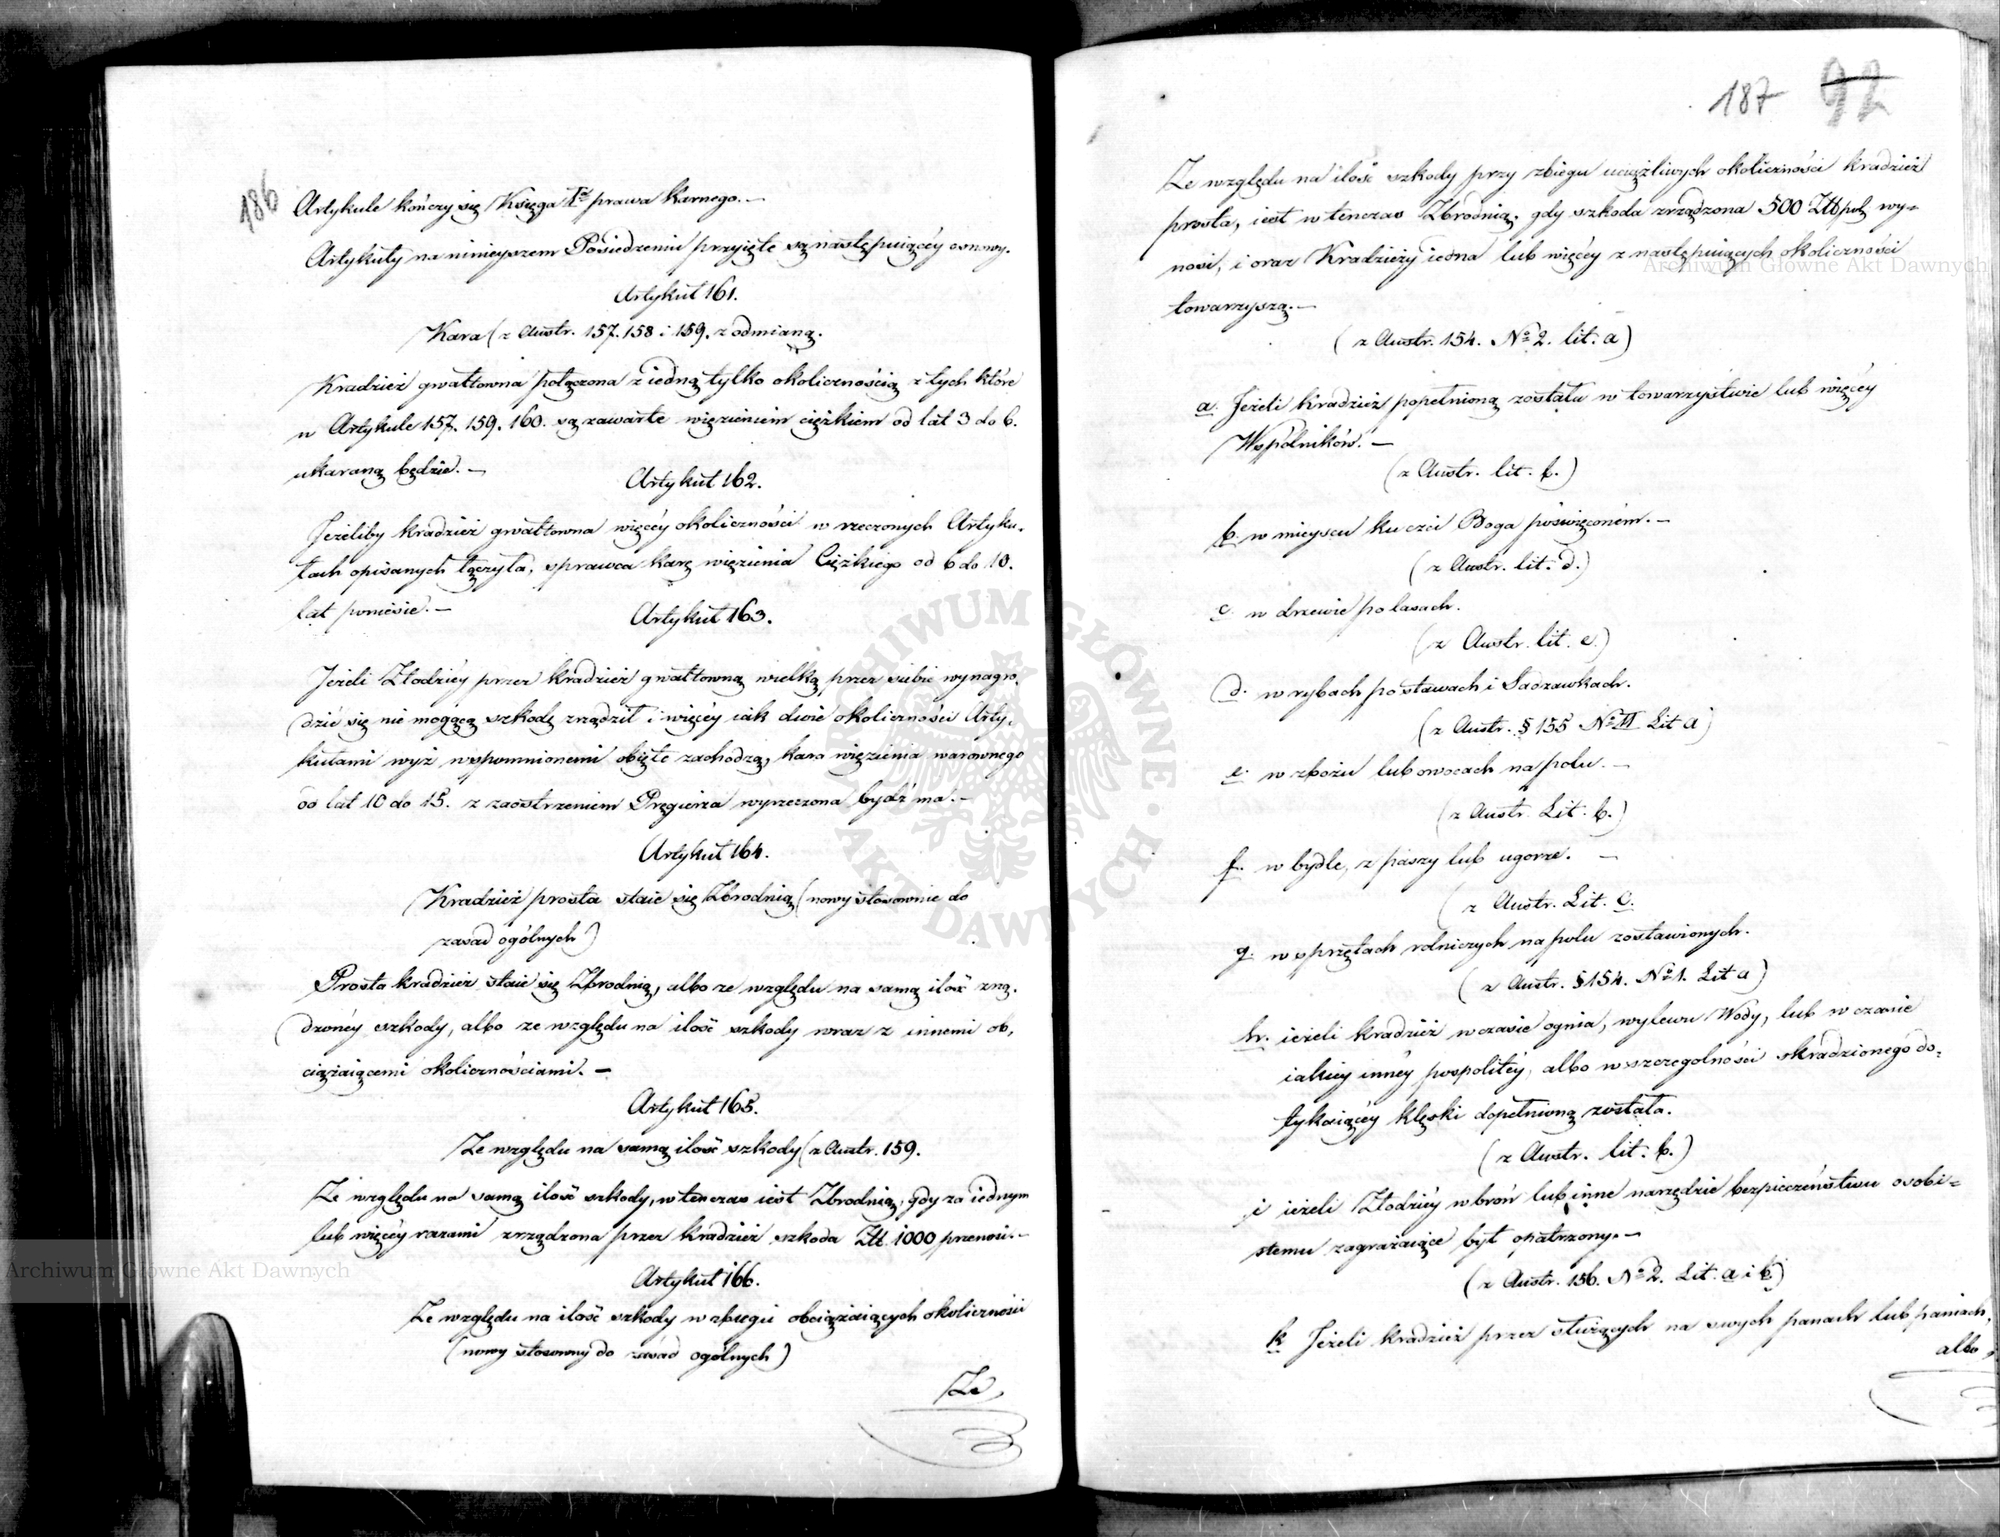 186
Artykule kończy się Księga I<sup>a</sup> prawa Karnego. —
Artykuły na ninieyszem Posiedzeniu przyięte są następuiącéy osnowy.
Artykuł 161.
Kara (z Austr. 157. 158 i 159. z odmianą.
Kradzież gwałtowna połączona z iedną tylko okolicznością z tych które
w Artykule 157. 159. 160. są zawarte więzieniem ciężkiem od lat 3 do 6.
ukaraną będzie. —
Artykuł 162.
Jeżeliby kradzież gwałtowna więcéy okoliczności w rzeczonych Artyku-
łach opisanych łączyła, sprawca karę więzienia Ciężkiego od 6 do 10.
lat poniesie. —
Artykuł 163.
Jeżeli Złodziéy przez kradzież gwałtowną wielką przez siebie wynagro-
dzić się nie mogącą szkodę zrządził i więcéy iak dwie okoliczności Arty-
kułami wyż wspomnionemi obięte zachodzą, kara więzienia warownego
od lat 10 do 15. z zaostrzeniem Pręgierza wyrzeczona bydź ma. —
Artykuł 164.
Kradzież prosta staie się Zbrodnią (nowy stosownie do
zasad ogólnych)
Prosta kradzież staie się Zbrodnią, albo ze względu na samą ilość zrzą-
dzonéy szkody, albo ze względu na ilość szkody wraz z innemi ob-
ciążaiącemi okolicznościami. —
Artykuł 165.
Ze względu na samą ilość szkody (z Austr. 159.
Ze względu na samą ilość szkody, w tenczas iest Zbrodnią, gdy za iednym
lub więcéy razami zrządzona przez kradzież szkoda Złł. 1000 przenosi. —
Artykuł 166.
Ze względu na ilość szkody w zbiegu obciążaiących okoliczności
(nowy stosowny do zasad ogólnych)
Ze
187 92
Ze względu na ilość szkody przy zbiegu uciążliwych okoliczności kradzież
prosta, iest w tenczas Zbrodnią, gdy szkoda zrządzona 500 Złł pol wy-
nosi, i oraz Kradzieży iedna lub więcéy z następuiących okoliczności
towarzyszą. —
(z Austr. 154. N<sup>o</sup> 2. lit. a)
a. Jeżeli kradzież popełnioną została w towarzystwie lub więcéy
Wspólników. —
(z Austr. lit. b.)
b. w mieyscu ku czci Boga poświęconém. —
(z Austr. lit. d.)
c. w drzewie po lasach.
(z Austr. lit. e.)
d. w rybach po stawach i Sadzawkach.
(z Austr. § 155 N<sup>o</sup> II Lit a)
e. w zbożu lub owocach na polu. —
(z Austr. Lit. b.)
f. w bydle, z paszy lub ugorze. —
(z Austr. Lit. C.
g. w sprzętach rolniczych na polu zostawionych.
(z Austr. § 154. N<sup>o</sup> 1. Lit a)
h. ieżeli kradzież w czasie ognia, wylewu Wody, lub w czasie
iakiey innéy pospolitéy, albo w szczególności skradzionego do-
tykaiącéy klęski dopełnioną została.
(z Austr. lit. b.)
i ieżeli Złodziéy w broń lub inne narzędzie bezpieczeństwu osobi-
stemu zagrażaiące był opatrzony. —
(z Austr. 156. N<sup>o</sup> 2. Lit. a i b)
k Jeżeli kradzież przez służących na swych panach lub paniach,
albo
Archiwum Główne Akt Dawnych
Archiwum Główne Akt Dawnych
ARCHIWUM GŁÓWNE AKT DAWNYCH